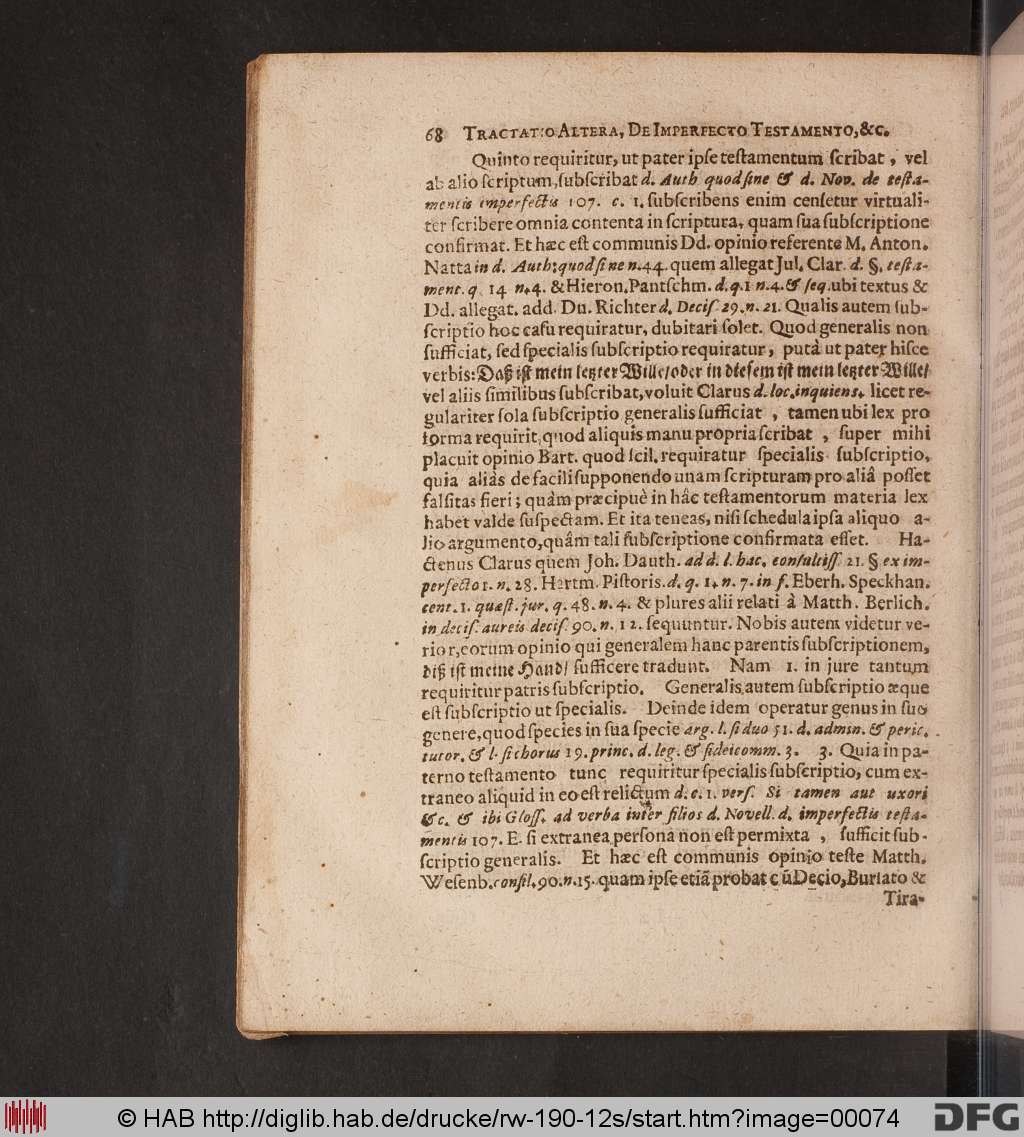 68 TRACTATIO ALTERA, DE IMPERFECTO TESTAMENTO, &c.
Quinto requiritur, ut pater ipse testamentum scribat, vel
ab alio scriptum, subscribat d. Auth quod sine & d. Nov. de testa-
mentis imperfectis 107. c. 1. subscribens enim censetur virtuali-
ter scribere omnia contenta in scriptura, quam sua subscriptione
confirmat. Et hæc est communis Dd. opinio referente M. Anton.
Natta in d. Auth: quod sine n. 44. quem allegat Jul. Clar. d. §. testa-
ment. q. 14 n. 4. & Hieron. Pantschm. d. q. 1 n. 4. & seq. ubi textus &
Dd. allegat. add. Dn. Richter d. Decis. 29. n. 21. Qualis autem sub-
scriptio hoc casu requiratur, dubitari solet. Quod generalis non
sufficiat, sed specialis subscriptio requiratur, putà ut pater hisce
verbis: Daß ist mein letzter Wille / oder in diesem ist mein letzter Wille /
vel aliis similibus subscribat, voluit Clarus d. loc. inquiens. licet re-
gulariter sola subscriptio generalis sufficiat, tamen ubi lex pro
forma requirit, quod aliquis manu propria scribat, super mihi
placuit opinio Bart. quod scil. requiratur specialis subscriptio,
quia aliàs de facili supponendo unam scripturam pro aliâ posset
falsitas fieri; quàm præcipuè in hâc testamentorum materia lex
habet valde suspectam. Et ita teneas, nisi schedula ipsa aliquo a-
lio argumento, quâm tali subscriptione confirmata esset. Ha-
ctenus Clarus quem Joh. Dauth. ad d. l. hac. consultiss. 21. § ex im-
perfecto 1. n. 28. Hartm. Pistoris. d. q. 1. n. 7. in f. Eberh. Speckhan.
cent. 1. quæst. jur. q. 48. n. 4. & plures alii relati à Matth. Berlich.
in decis. aureis decis. 90. n. 12. sequuntur. Nobis autem videtur ve-
rior, eorum opinio qui generalem hanc parentis subscriptionem,
diß ist meine Hand / sufficere tradunt. Nam 1. in jure tantum
requiritur patris subscriptio. Generalis autem subscriptio æque
est subscriptio ut specialis. Deinde idem operatur genus in suo
genere, quod species in sua specie arg. l. si duo 51. d. admin. & peric.
tutor. & l. si chorus 19. princ. d. leg. & fideicomm. 3. 3. Quia in pa-
terno testamento tunc requiritur specialis subscriptio, cum ex-
traneo aliquid in eo est relictum d. c. 1. vers. Si tamen aut uxori
&c. & ibi Gloss. ad verba inter filios d. Novell. d. imperfectis testa-
mentis 107. E. si extranea persona non est permixta, sufficit sub-
scriptio generalis. Et hæc est communis opinio teste Matth.
Wesenb. consil. 90. n. 15. quam ipse etiã probat cũ Decio, Burlato &
Tira-
© HAB http://diglib.hab.de/drucke/rw-190-12s/start.htm?image=00074 DFG